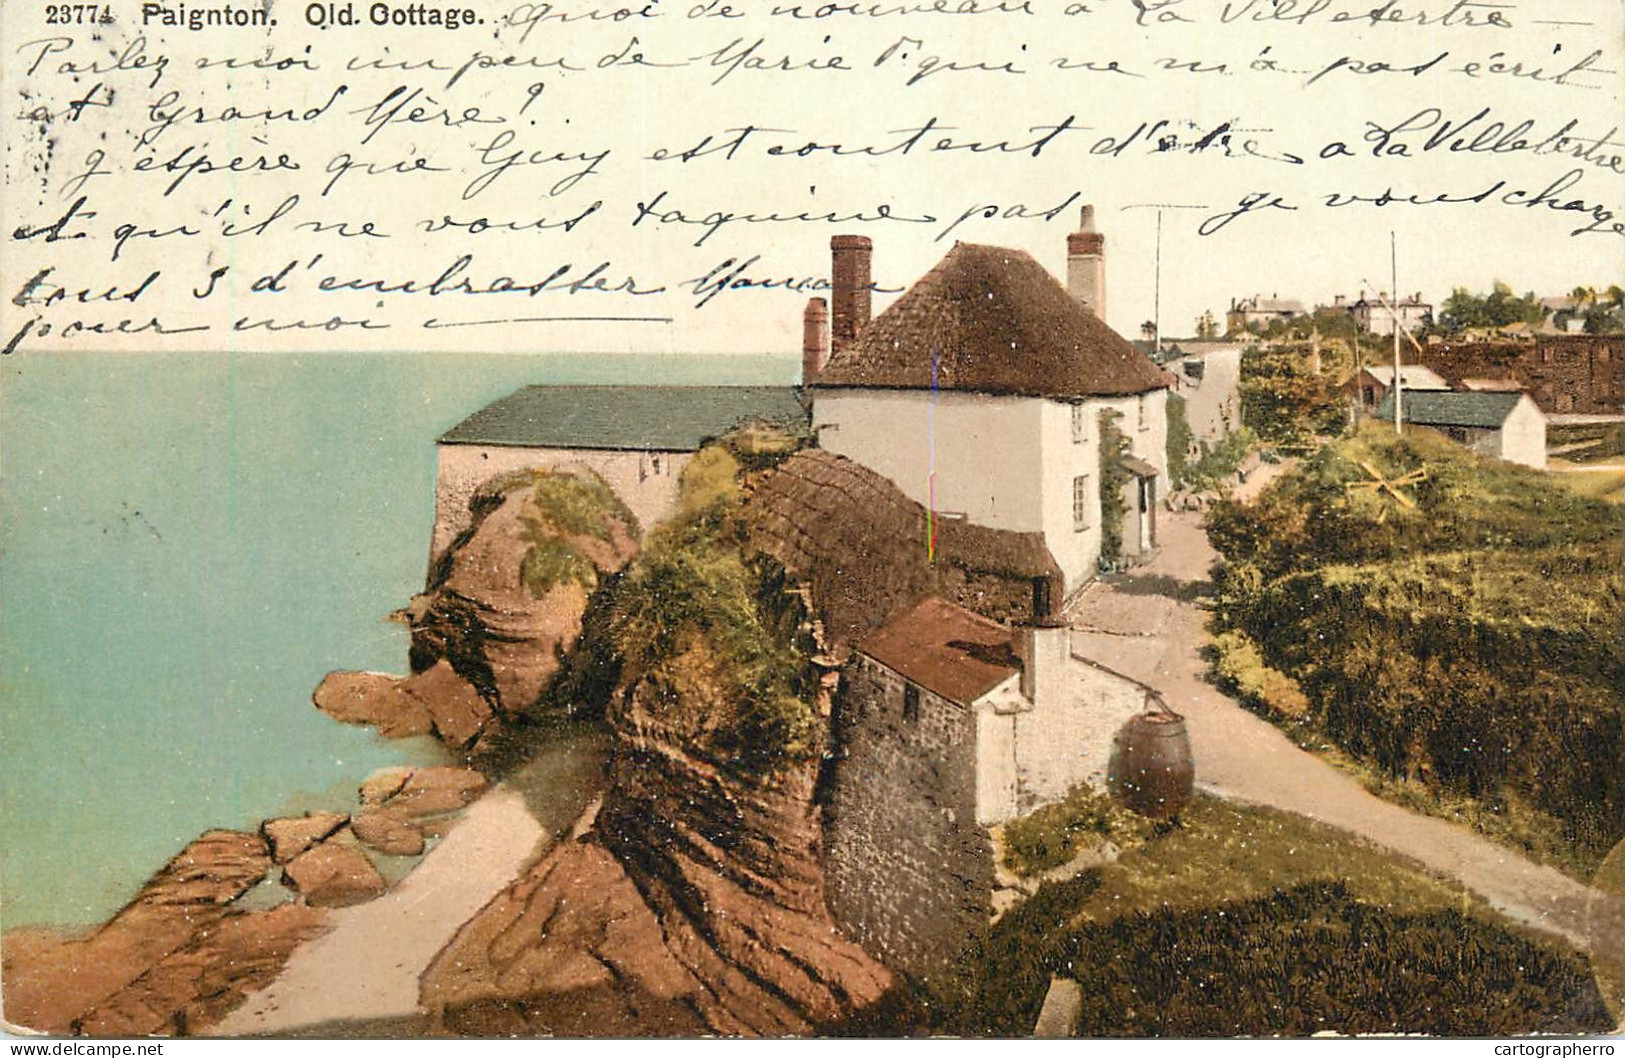 23774 Paignton. Old. Cottage. Quoi de nouveau à La Villetertre —
Parlez moi un peu de Marie qui ne m'a pas écrit
et Grand Mère?
J'espère que Guy est content d'être a La Villetertre
et qu'il ne vous taquine pas — je vous charge
tous 3 d'embrasser Maman
pour moi
delcampe.net
cartographerro